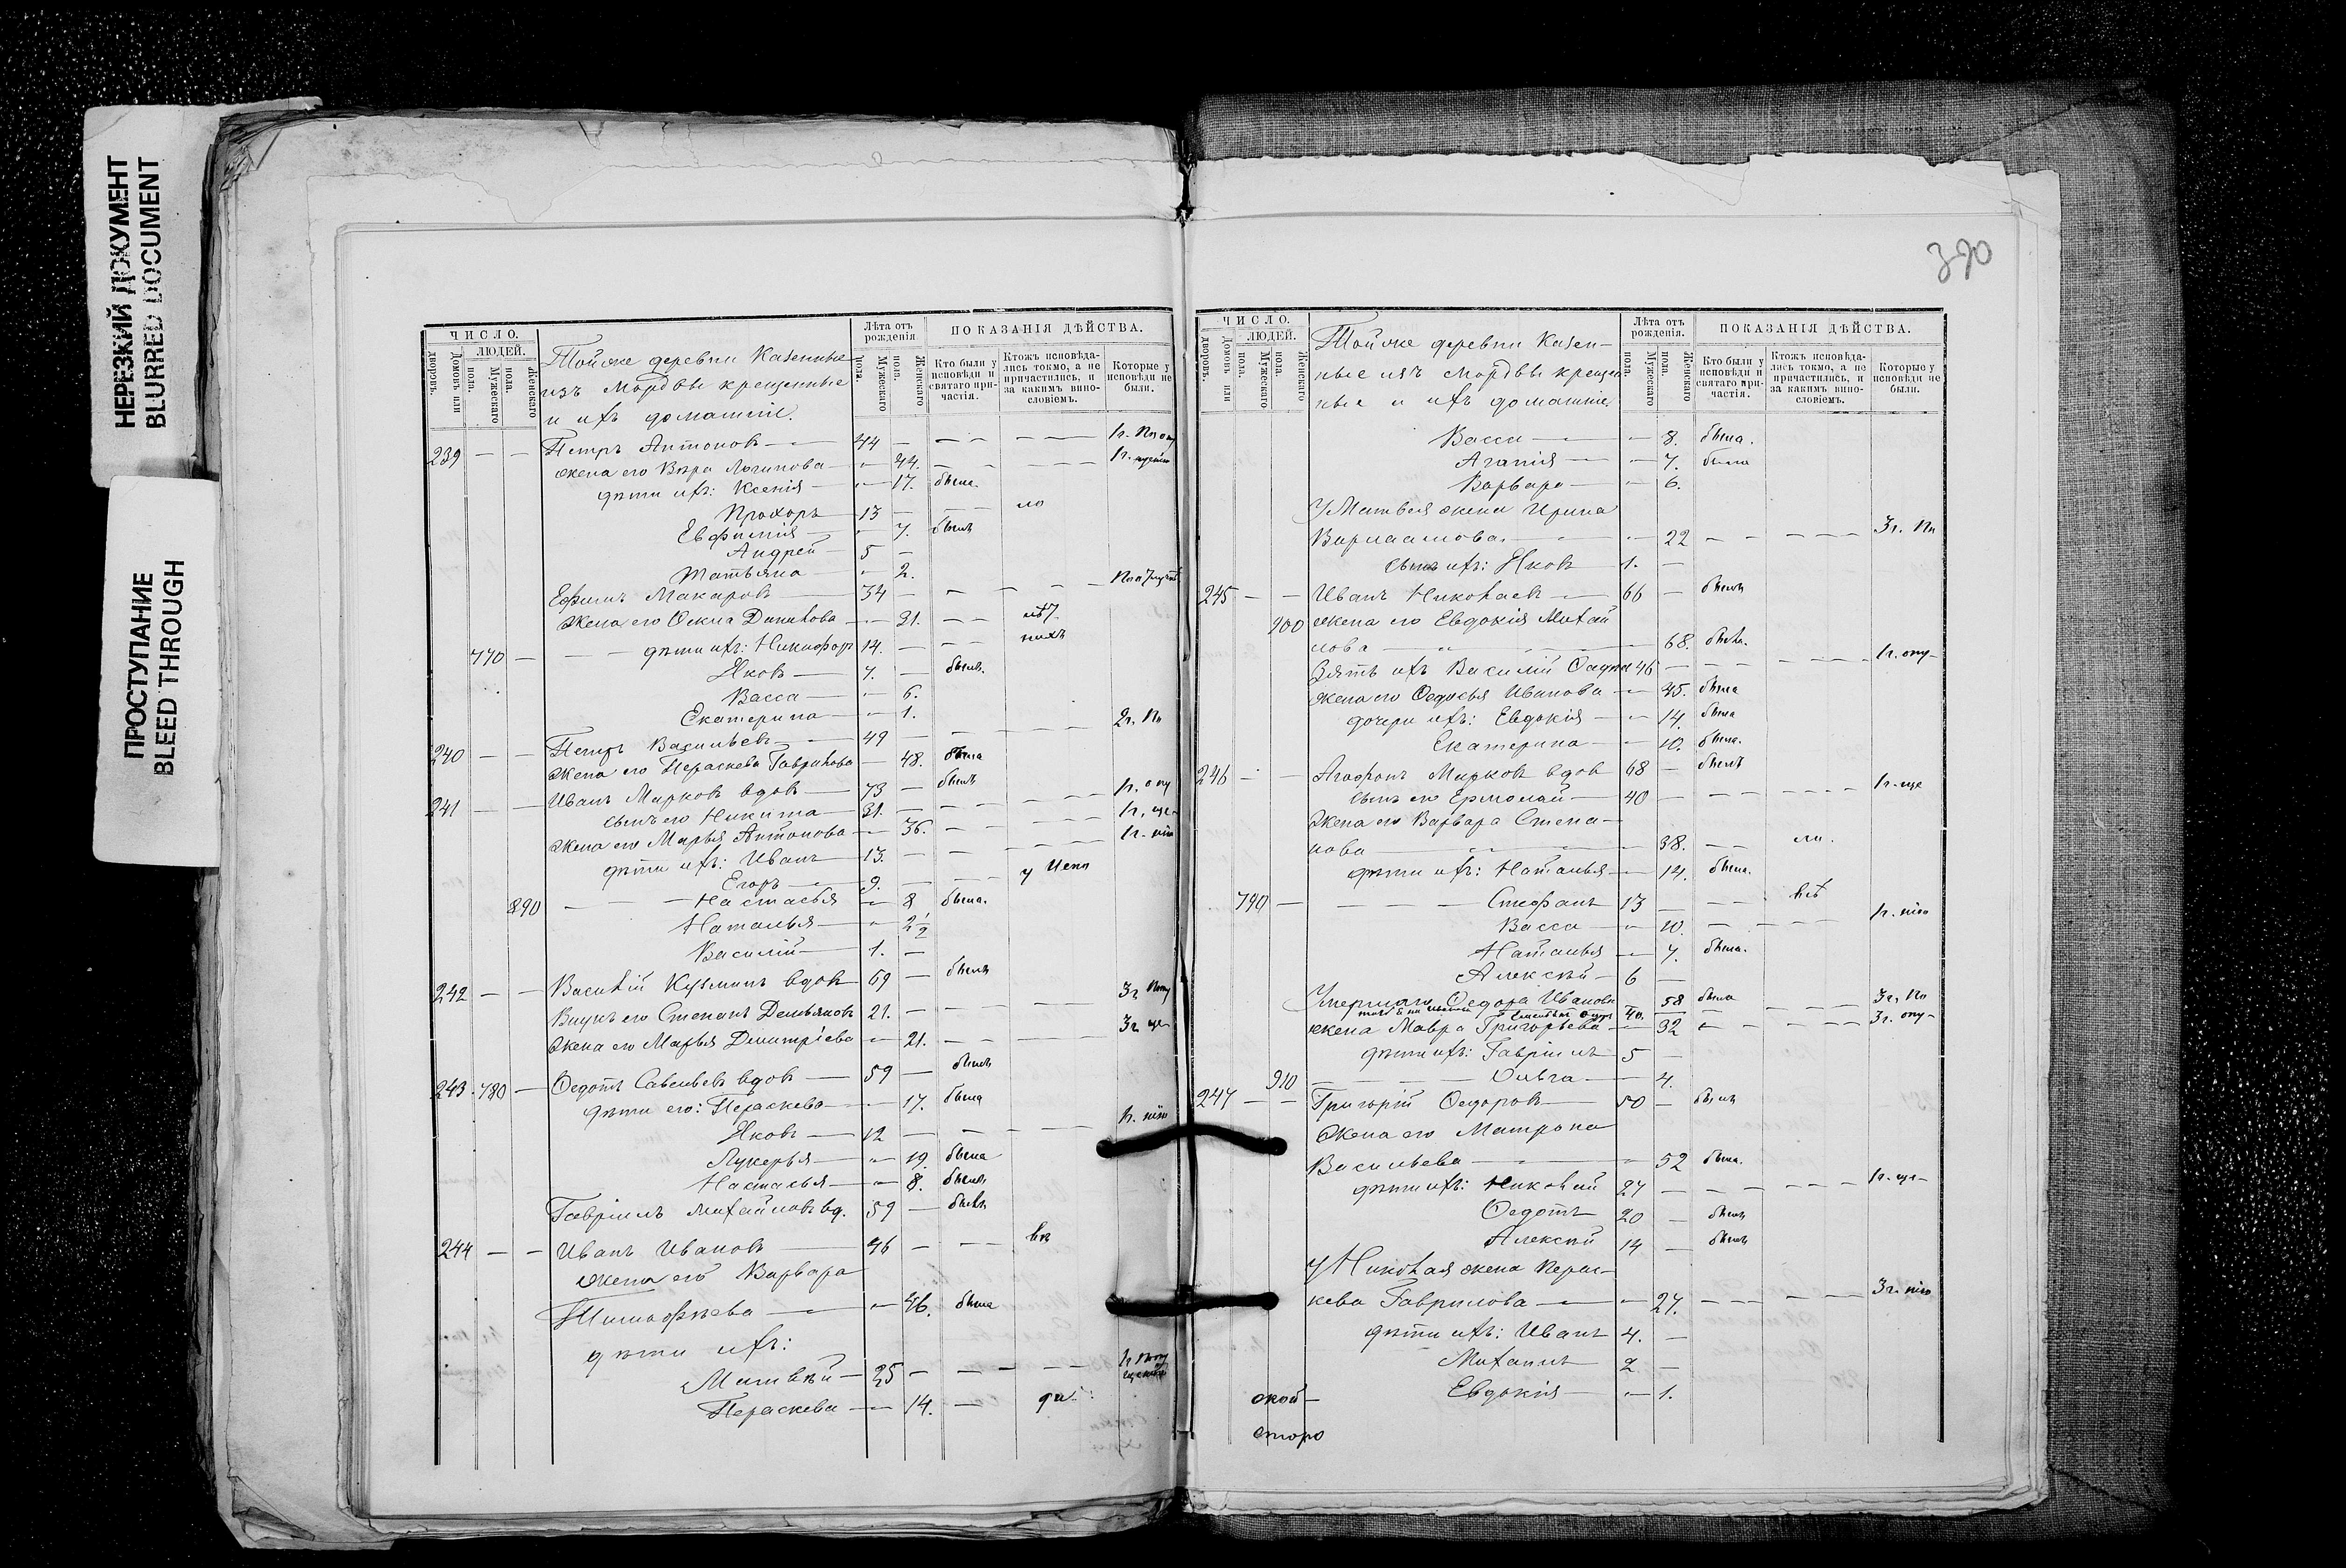 НЕРЕЗКИЙ ДОКУМЕНТ
BLURRED DOCUMENT
ПРОСТУПАНИЕ
BLEED THROUGH
ЧИСЛО.
Домовъ или дворовъ.
ЛЮДЕЙ.
Мужескаго пола.
Женскаго пола.
Тойже деревни Казенные
изъ Мордвы крещенные
и ихъ домашніе.
Лѣта отъ рожденія
Мужескаго пола.
Женскаго пола.
ПОКАЗАНІЯ ДѢЙСТВА.
Кто были у исповѣди и святаго причастія.
Ктожъ исповѣдались токмо, а не причастились, и за какимъ винословіемъ.
Которые у исповѣди не были.
239 — — Петръ Антоновъ — 44 —
жена его Вѣра Логинова — 44.
дѣти ихъ: Ксенія — 17. была.
Прохоръ — 13 — ло
Евфимія — 7. былъ
Андрей — 5 —
Татьяна — 2.
Ефимъ Макаровъ 34 —
жена его Ѳекла Данилова — 31.
770 — дѣти ихъ: Никифоръ 14. —
Яковъ — 7. — былъ.
Васса — 6.
Екатерина — 1.
240 — — Петръ Васильевъ — 49 — 2г. По
Жена его Пераскева Гаврилова — 48. была
241 — — Иванъ Марковъ вдовъ — 73 — былъ
сынъ его Никита — 31.
жена его Марья Антонова — 36.
дѣти ихъ: Иванъ — 13.
Егоръ — 9.
890 — Настасья — 8 была.
Наталья — 2 1/2
Василій — 1. —
242 — — Василій Кузминъ вдовъ 69 — былъ
Внукъ его Степанъ Демьяновъ 21. —
Жена его Марья Димитріева — 21.
243. 780 — Ѳедотъ Савельевъ вдовъ — 59 — былъ
дѣти его: Пераскева — 17. была
Яковъ — 12 —
Лукерья — 19. была
Настасья — 8. былъ
Гавріилъ Михайловъ вд. 59 — былъ
244 — — Иванъ Ивановъ 46 — въ
жена его Варвара
Тимофѣева — 46. была
дѣти ихъ:
Матвѣй — 25 —
Пераскева — 14. — ди
390
ЧИСЛО.
Домовъ или дворовъ.
ЛЮДЕЙ.
Мужескаго пола.
Женскаго пола.
Тойже деревни Казен-
ные изъ Мордвы крещен
ные и ихъ домашніе
Лѣта отъ рожденія.
Мужескаго пола.
Женскаго пола.
ПОКАЗАНІЯ ДѢЙСТВА.
Кто были у исповѣди и святаго причастія.
Ктожъ исповѣдались токмо, а не причастились, и за какимъ винословіемъ.
Которые у исповѣди не были.
Васса — 8. была.
Агапія — 7. была
Варвара — 6.
У Матвея жена Ирина
Варлаамова — 22 — 3г. По
сынъ ихъ: Яковъ 1. —
245 — — Иванъ Николаевъ — 66 — былъ
900 жена его Евдокія Михай
лова — 68. была.
Зять ихъ Василій 46 —
жена его Ѳедосья Иванова — 45. была
дочери ихъ: Евдокія — 14. была
Екатерина — 10. была.
246 — — Агафонъ Марковъ вдов 68 — былъ
сынъ его Ермолай — 40
Жена его Варвара Степа-
нова — 38. — ли.
дѣти ихъ: Наталья — 14. была.
790 — Стефанъ 13
Васса — 10.
Наталья — 7. была.
Алексѣй — 6 —
Ѳедора Иванова 58 была 3г. По
40.
жена Мавра Григорьева — 32
дѣти ихъ: Гавріилъ 5 —
910 — Ольга — 4.
247 — — Григорій Ѳедоровъ — 50 — былъ
Жена его Матрона
Васильева — 52 была.
дѣти ихъ: Николай 27 —
Ѳедотъ 20 — былъ
Алексѣй 14 — былъ
У Николая жена Перас-
кева Гаврилова — 27.
дѣти ихъ: Иванъ 4. —
Михаилъ 2 —
Евдокія — 1.